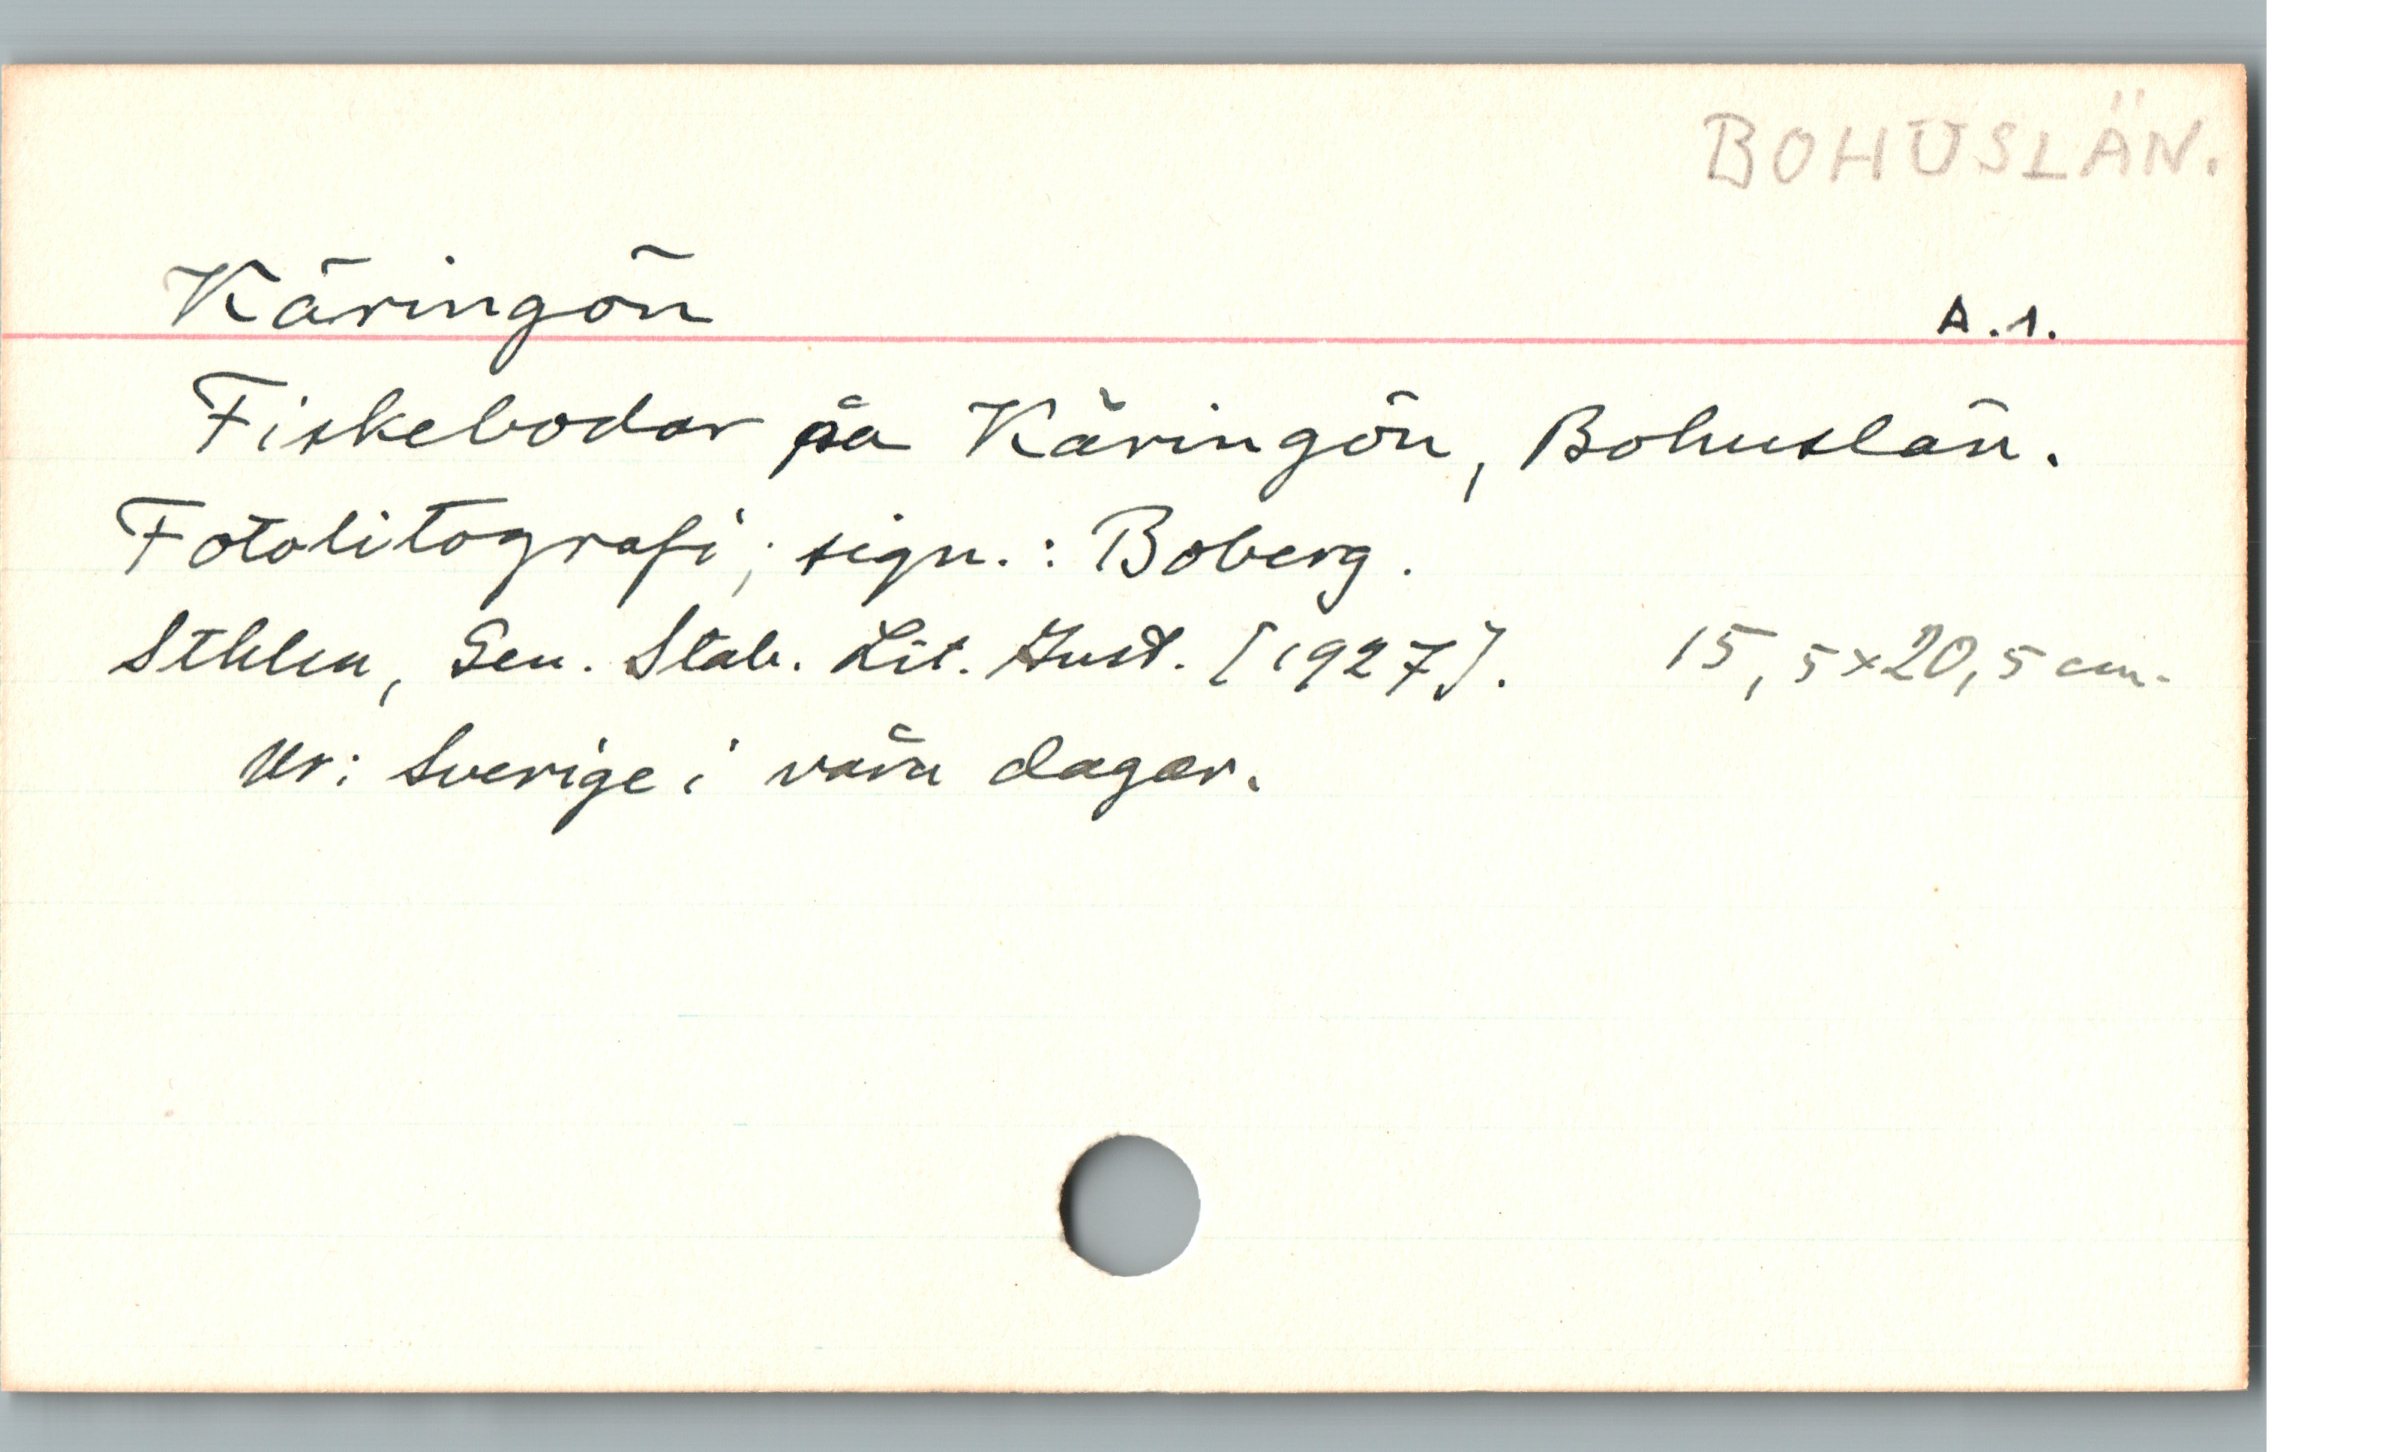 BOHUSLÄN.
Käringön A.1.
Fiskebodar på Käringön, Bohuslän.
Fotolitografi; sign.: Boberg.
Sthlm, Gen. Stab. Lit. Inst. [1927]. 15,5x20,5 cm.
Ur: Sverige i våra dagar.